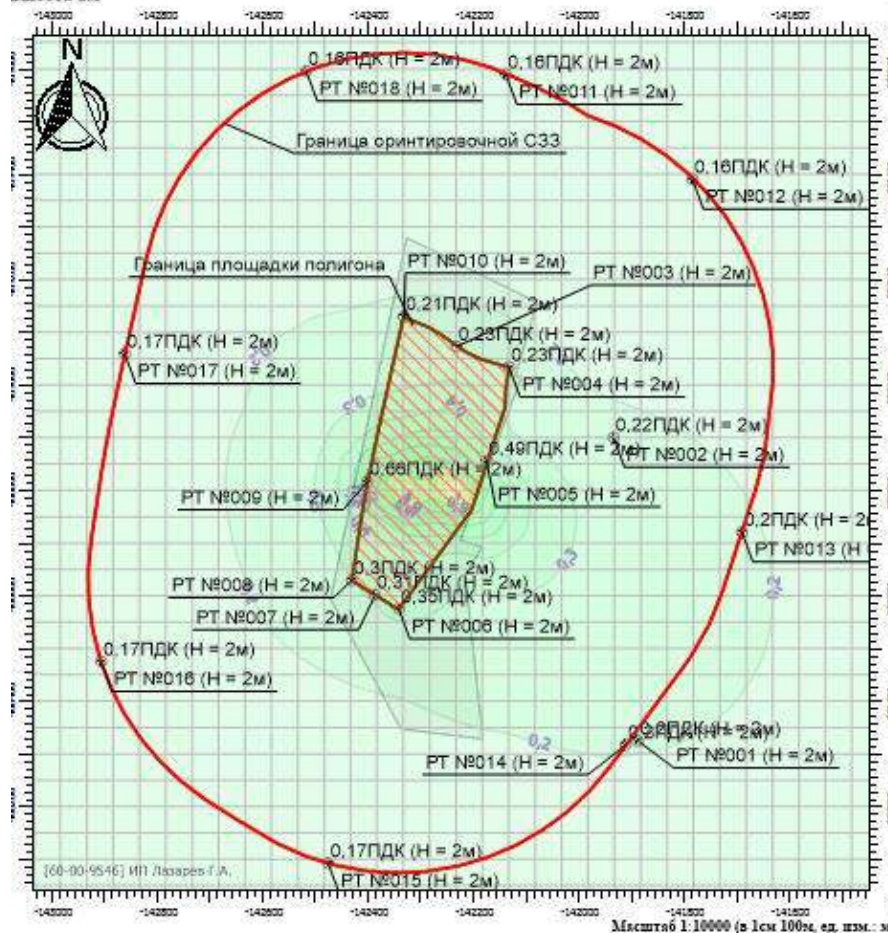 -143000 -142800 -142600 -142400 -142200 -142000 -141800 -141600
N
0,16ПДК (Н = 2м)
РТ №018 (Н = 2м)
0,16ПДК (Н = 2м)
РТ №011 (Н = 2м)
Граница оринтировочной СЗЗ
0,16ПДК (Н = 2м)
РТ №012 (Н = 2м)
Граница площадки полигона
РТ №010 (Н = 2м)
РТ №003 (Н = 2м)
0,21ПДК (Н = 2м)
0,23ПДК (Н = 2м)
0,17ПДК (Н = 2м)
РТ №017 (Н = 2м)
0,23ПДК (Н = 2м)
РТ №004 (Н = 2м)
0,3
0,4
0,22ПДК (Н = 2м)
РТ №002 (Н = 2м)
0,49ПДК (Н = 2м)
РТ №005 (Н = 2м)
0,66ПДК (Н = 2м)
РТ №009 (Н = 2м)
0,2ПДК (Н = 2
РТ №013 (Н =
0,2
0,3ПДК (Н = 2м)
РТ №008 (Н = 2м)
0,31ПДК (Н = 2м)
РТ №007 (Н = 2м)
0,35ПДК (Н = 2м)
РТ №006 (Н = 2м)
0,2
0,17ПДК (Н = 2м)
РТ №016 (Н = 2м)
0,2
РТ №014 (Н = 2м)
РТ №001 (Н = 2м)
0,17ПДК (Н = 2м)
РТ №015 (Н = 2м)
[60-00-9546] ИП Лазарев Г.А.
-143000 -142800 -142600 -142400 -142200 -142000 -141800 -141600
Масштаб 1:10000 (в 1см 100м, ед. изм.: м